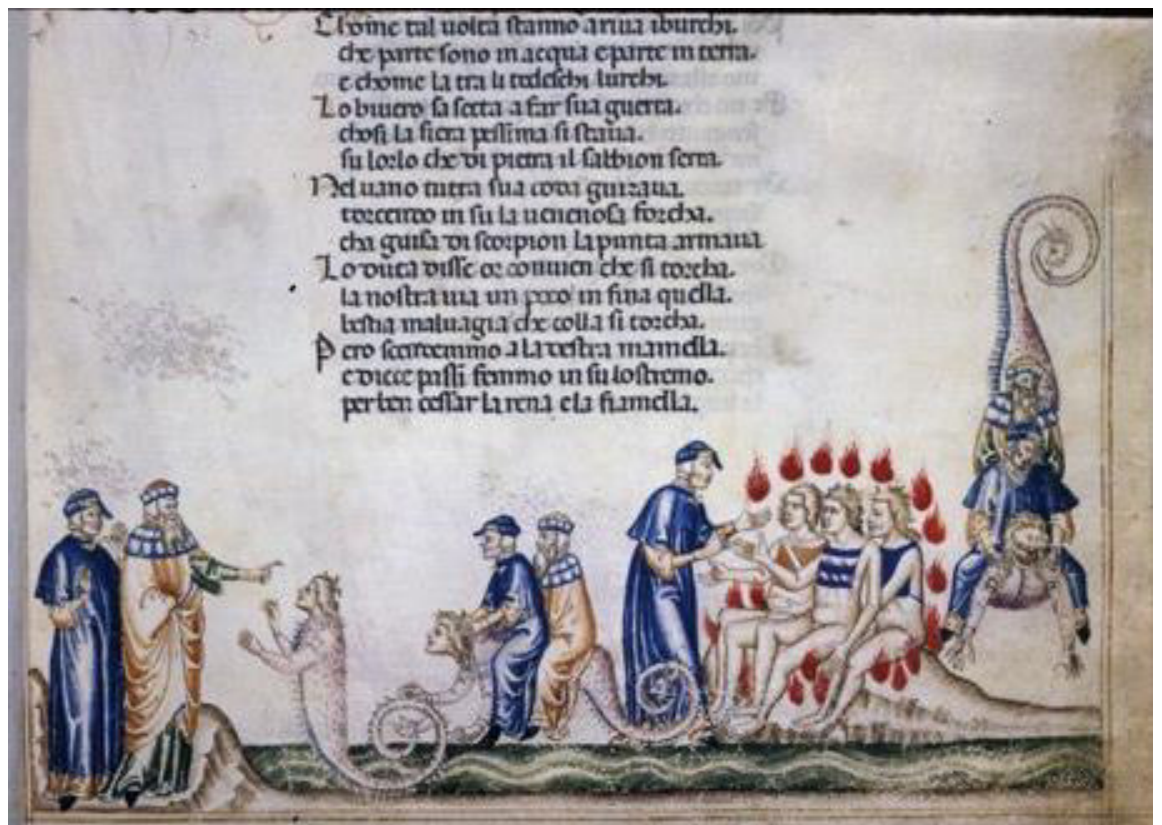 Chome tal uolta stanno a riua i burchi.
che parte sono in acqua e parte in terra.
e chome la tra li tedeschi lurchi.
Lo biuero sa setta a far sua guerra.
chosi la fiera pessima si staua.
su lorlo che di pietra il sabbion serra.
Nel uano tutta sua coda guizaua.
torcendo in su la uenenosa forcha.
cha guisa di scorpion la punta armaua
Lo duca disse or conuien che si torcha.
la nostra uia un poco in fina quella.
bestia maluagia che colla si corcha.
Pero scendemmo a la destra mamella.
e diece passi femmo in su lo stremo.
per ben cessar la rena e la fiamella.